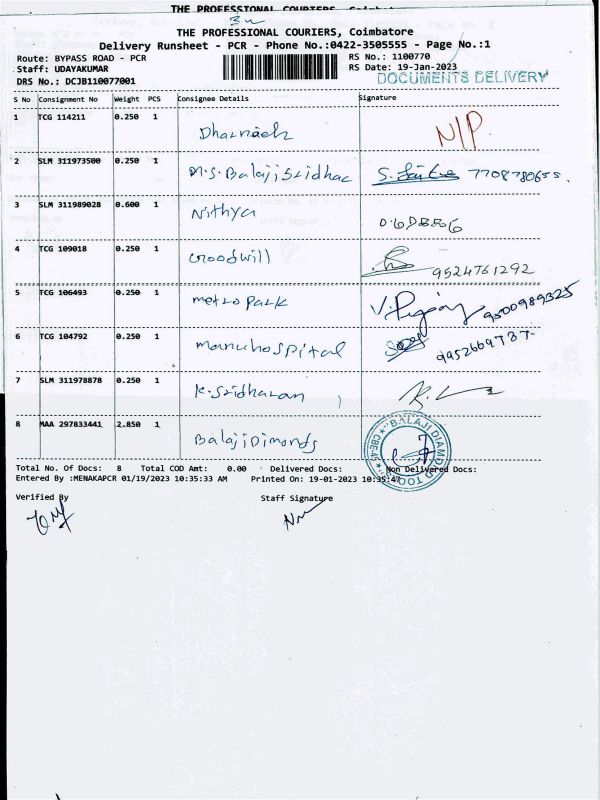 THE PROFESSIONAL COURIERS,
THE PROFESSIONAL COURIERS, Coimbatore
Delivery Runsheet - PCR - Phone No.:0422-3505555 - Page No.:1
Route: BYPASS ROAD - PCR RS No.: 1100770
Staff: UDAYAKUMAR RS Date: 19-Jan-2023
DOCUMENTS DELIVERY
DRS No.: DCJB110077001
S No Consignment No Weight PCS Consignee Details Signature
1 TCG 114211 0.250 1 N/P.
Dharnäesh
2 SLM 311973500 0.250 1
M.S. Balaji Sridhar 7708780655.
3 SLM 311989028 0.600 1
Nithya
4 TCG 109018 0.250 1
Goodwill 9524761292
5 TCG 106493 0.250 1
metro park 9500989325
6 TCG 104792 0.250 1
manuhospital 9952669737-
7 SLM 311978878 0.250 1
K. Sridharan
8 MAA 297833441 2.850 1
Balaji Dimonds
BALAJI DIAMOND TOOLS CBE-45
Total No. Of Docs: 8 Total COD Amt: 0.00 Delivered Docs: Non Delivered Docs:
Entered By :MENAKAPCR 01/19/2023 10:35:33 AM Printed On: 19-01-2023 10:35:47
Verified By Staff Signature